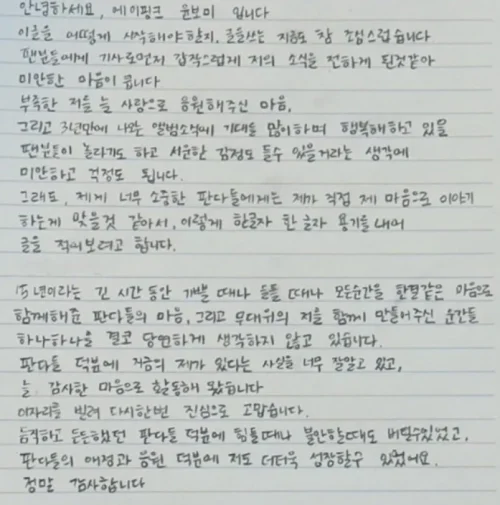 안녕하세요, 에이핑크 윤보미 입니다
이글을 어떻게 시작해야할지, 글을쓰는 지금도 참 조심스럽습니다
팬분들에게 기사로먼저 갑작스럽게 저의 소식을 전하게 된것같아
미안한 마음이 큽니다
부족한 저를 늘 사랑으로 응원해주신 마음,
그리고 3년만에 나오는 앨범소식에 기대를 많이하며 행복해하고 있을
팬분들이 놀라기도 하고 서운한 감정도 들수 있을거라는 생각에
미안하고 걱정도 됩니다.
그래도, 제게 너무 소중한 판다들에게는 제가 직접 제 마음으로 이야기
하는게 맞을것 같아서, 이렇게 한글자 한 글자 용기를 내어
글을 적어보려고 합니다.
15년이라는 긴 시간 동안 기쁠 때나 힘들 때나 모든순간을 한결같은 마음으로
함께해준 판다들의 마음, 그리고 무대위의 저를 함께 만들어주신 순간들
하나하나를 결코 당연하게 생각하지 않고 있습니다.
판다들 덕분에 지금의 제가 있다는 사실을 너무 잘알고 있고,
늘 감사한 마음으로 활동해 왔습니다
이자리를 빌려 다시한번 진심으로 고맙습니다.
듬직하고 든든했던 판다들 덕분에 힘들때나 불안할때도 버틸수있었고,
판다들의 애정과 응원 덕분에 저도 더더욱 성장할수 있었어요.
정말 감사합니다